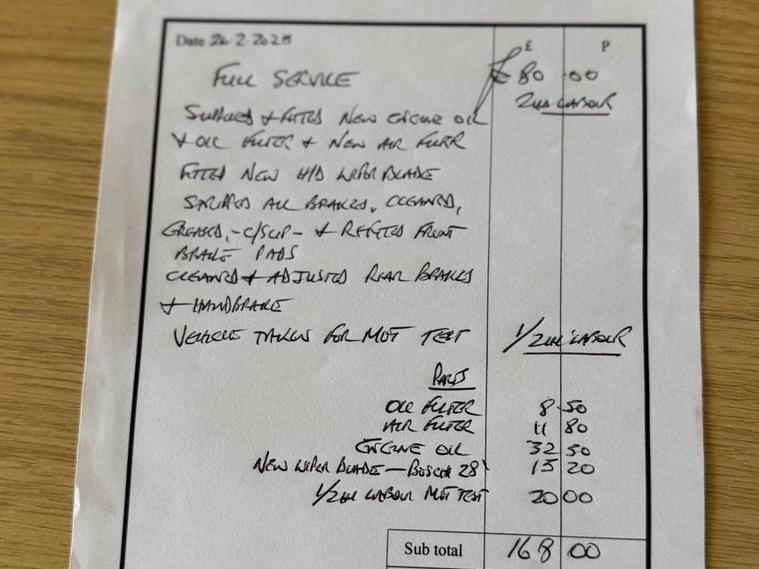 Date 26.2.2025 £ P
FULL SERVICE £80.00
2HR LABOUR
SUPPLIED & FITTED NEW ENGINE OIL
& OIL FILTER & NEW AIR FILTER
FITTED NEW H/D WIPER BLADE
STRIPPED ALL BRAKES, CLEANED,
GREASED, -C/SLIP- & REFITTED FRONT
BRAKE PADS
CLEANED & ADJUSTED REAR BRAKES
& HANDBRAKE
VEHICLE TAKEN FOR MOT TEST 1/2HR LABOUR
PARTS
OIL FILTER 8.50
AIR FILTER 11 80
ENGINE OIL 32 50
NEW WIPER BLADE — BOSCH 28" 15 20
1/2HR LABOUR MOT TEST 20 00
Sub total 168 00